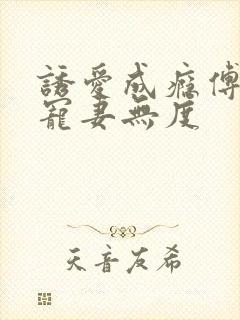 誘愛成癮傅
寵妻無度
天音友希